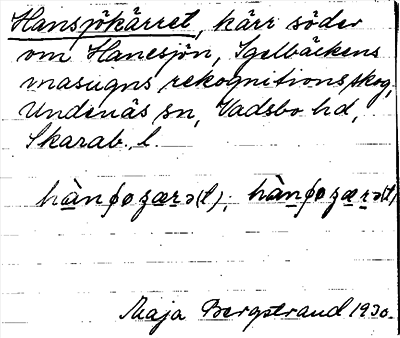 Hansjökärret, kärr söder
om Hanesjön, Igelbäckens
masugns rekognitionsskog,
Undenäs sn, Vadsbo hd,
Skarab. l.
Maja Bergstrand 1930.